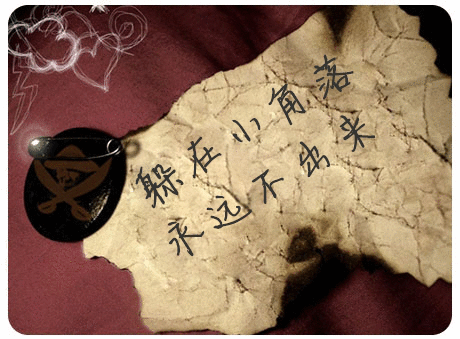 躲在小角落
永远不出来